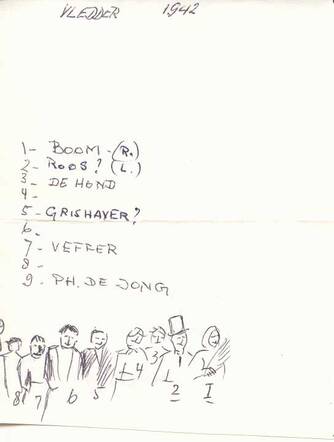 VLEDDER 1942
1- BOOM - (R.)
2- ROOS? (L.)
3- DE HOND
4-
5- GRISHAVER?
6-
7- VEFFER
8-
9- PH. DE JONG
8 7 6 5 4 3 2 I